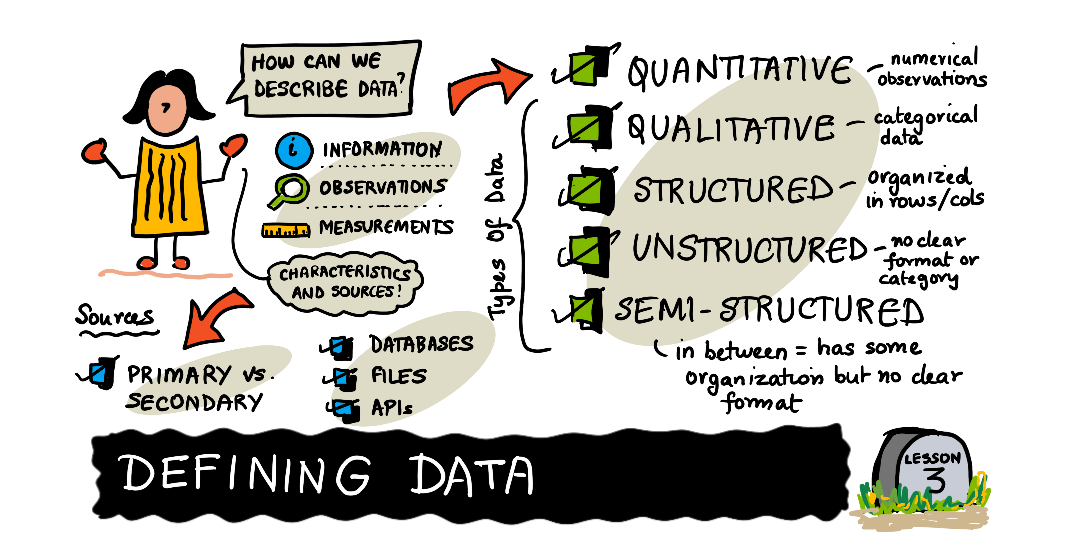 HOW CAN WE
DESCRIBE DATA?
i
INFORMATION
OBSERVATIONS
MEASUREMENTS
CHARACTERISTICS
AND SOURCES!
Sources
PRIMARY vs.
SECONDARY
DATABASES
FILES
APIs
Types Of Data
QUANTITATIVE - numerical
observations
QUALITATIVE - categorical
data
STRUCTURED - organized
in rows/cols
UNSTRUCTURED - no clear
format or
category
SEMI-STRUCTURED
in between = has some
organization but no clear
format
DEFINING DATA
LESSON
3